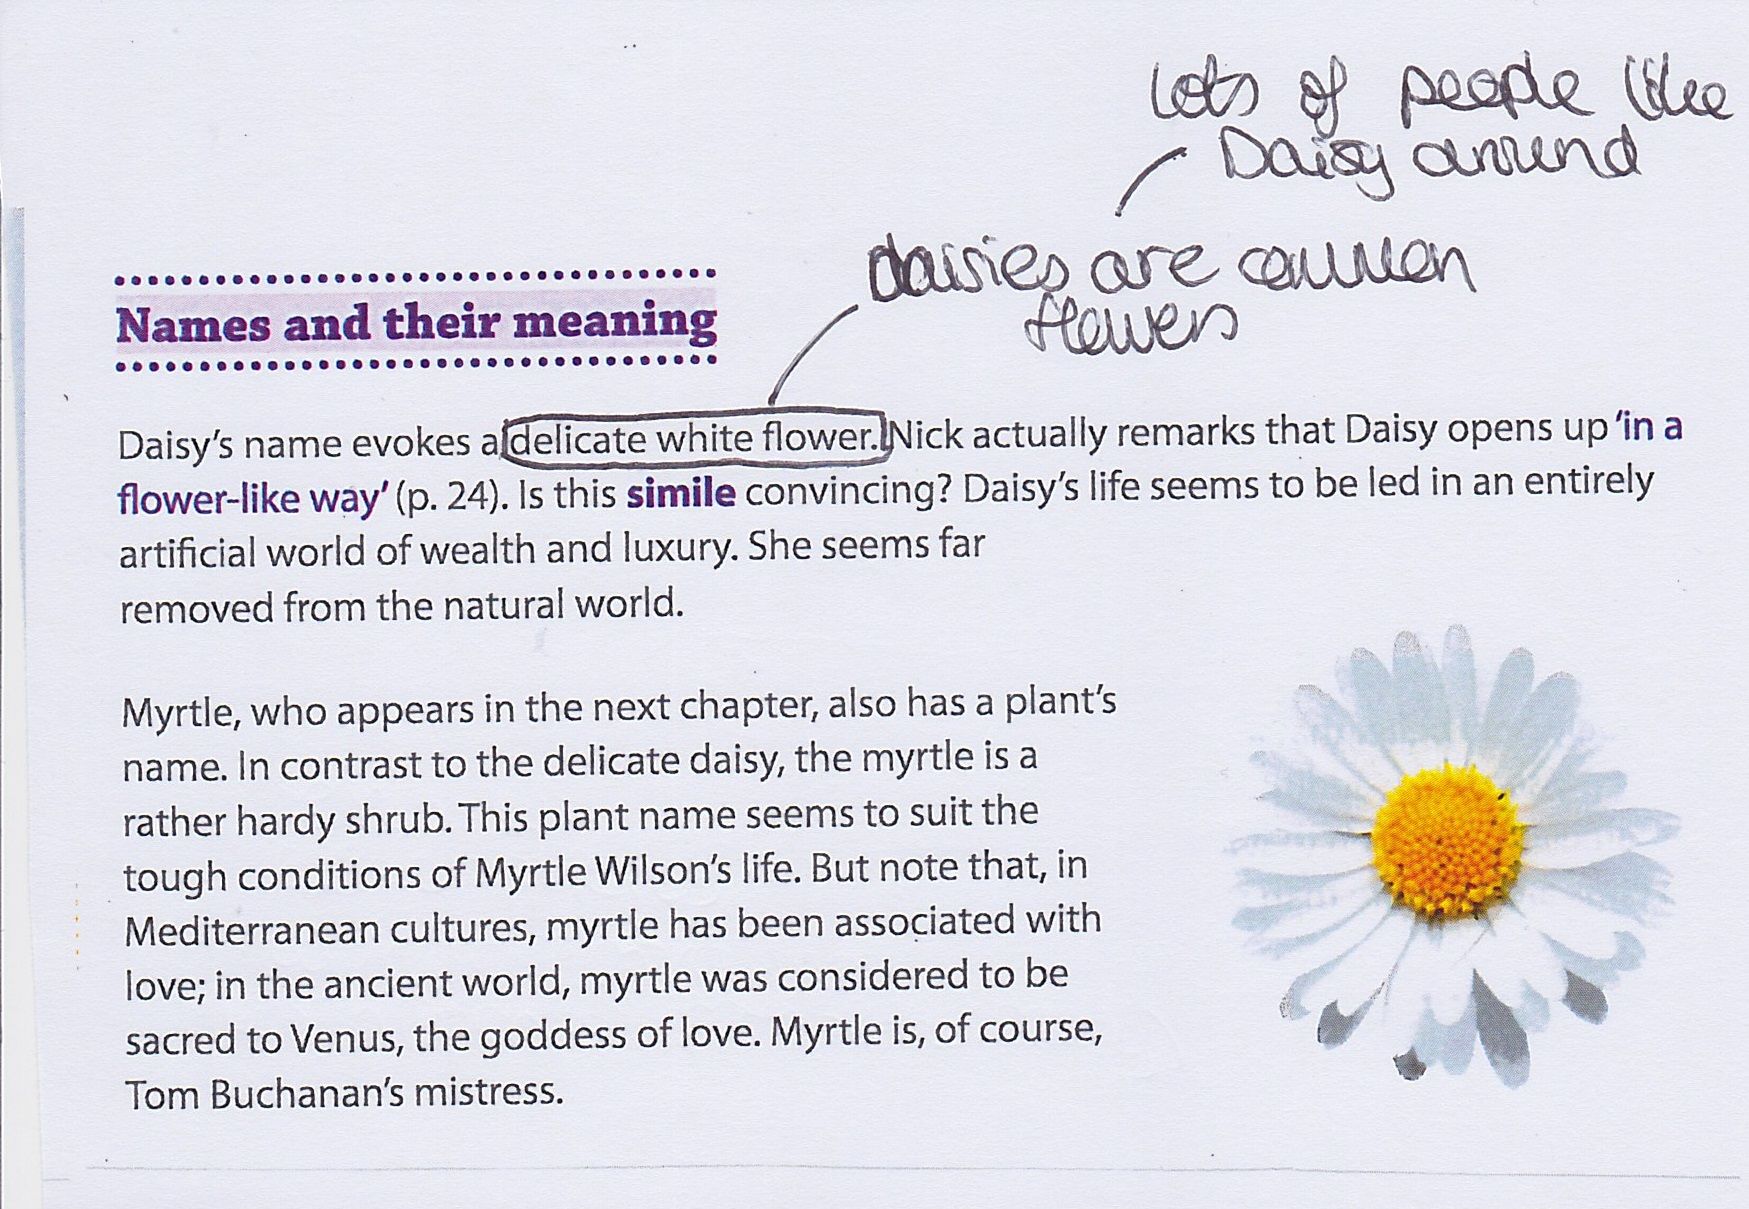 lots of people like
Daisy around
daisies are common
flowers
Names and their meaning
Daisy's name evokes a delicate white flower. Nick actually remarks that Daisy opens up 'in a
flower-like way' (p. 24). Is this simile convincing? Daisy's life seems to be led in an entirely
artificial world of wealth and luxury. She seems far
removed from the natural world.
Myrtle, who appears in the next chapter, also has a plant's
name. In contrast to the delicate daisy, the myrtle is a
rather hardy shrub. This plant name seems to suit the
tough conditions of Myrtle Wilson's life. But note that, in
Mediterranean cultures, myrtle has been associated with
love; in the ancient world, myrtle was considered to be
sacred to Venus, the goddess of love. Myrtle is, of course,
Tom Buchanan's mistress.